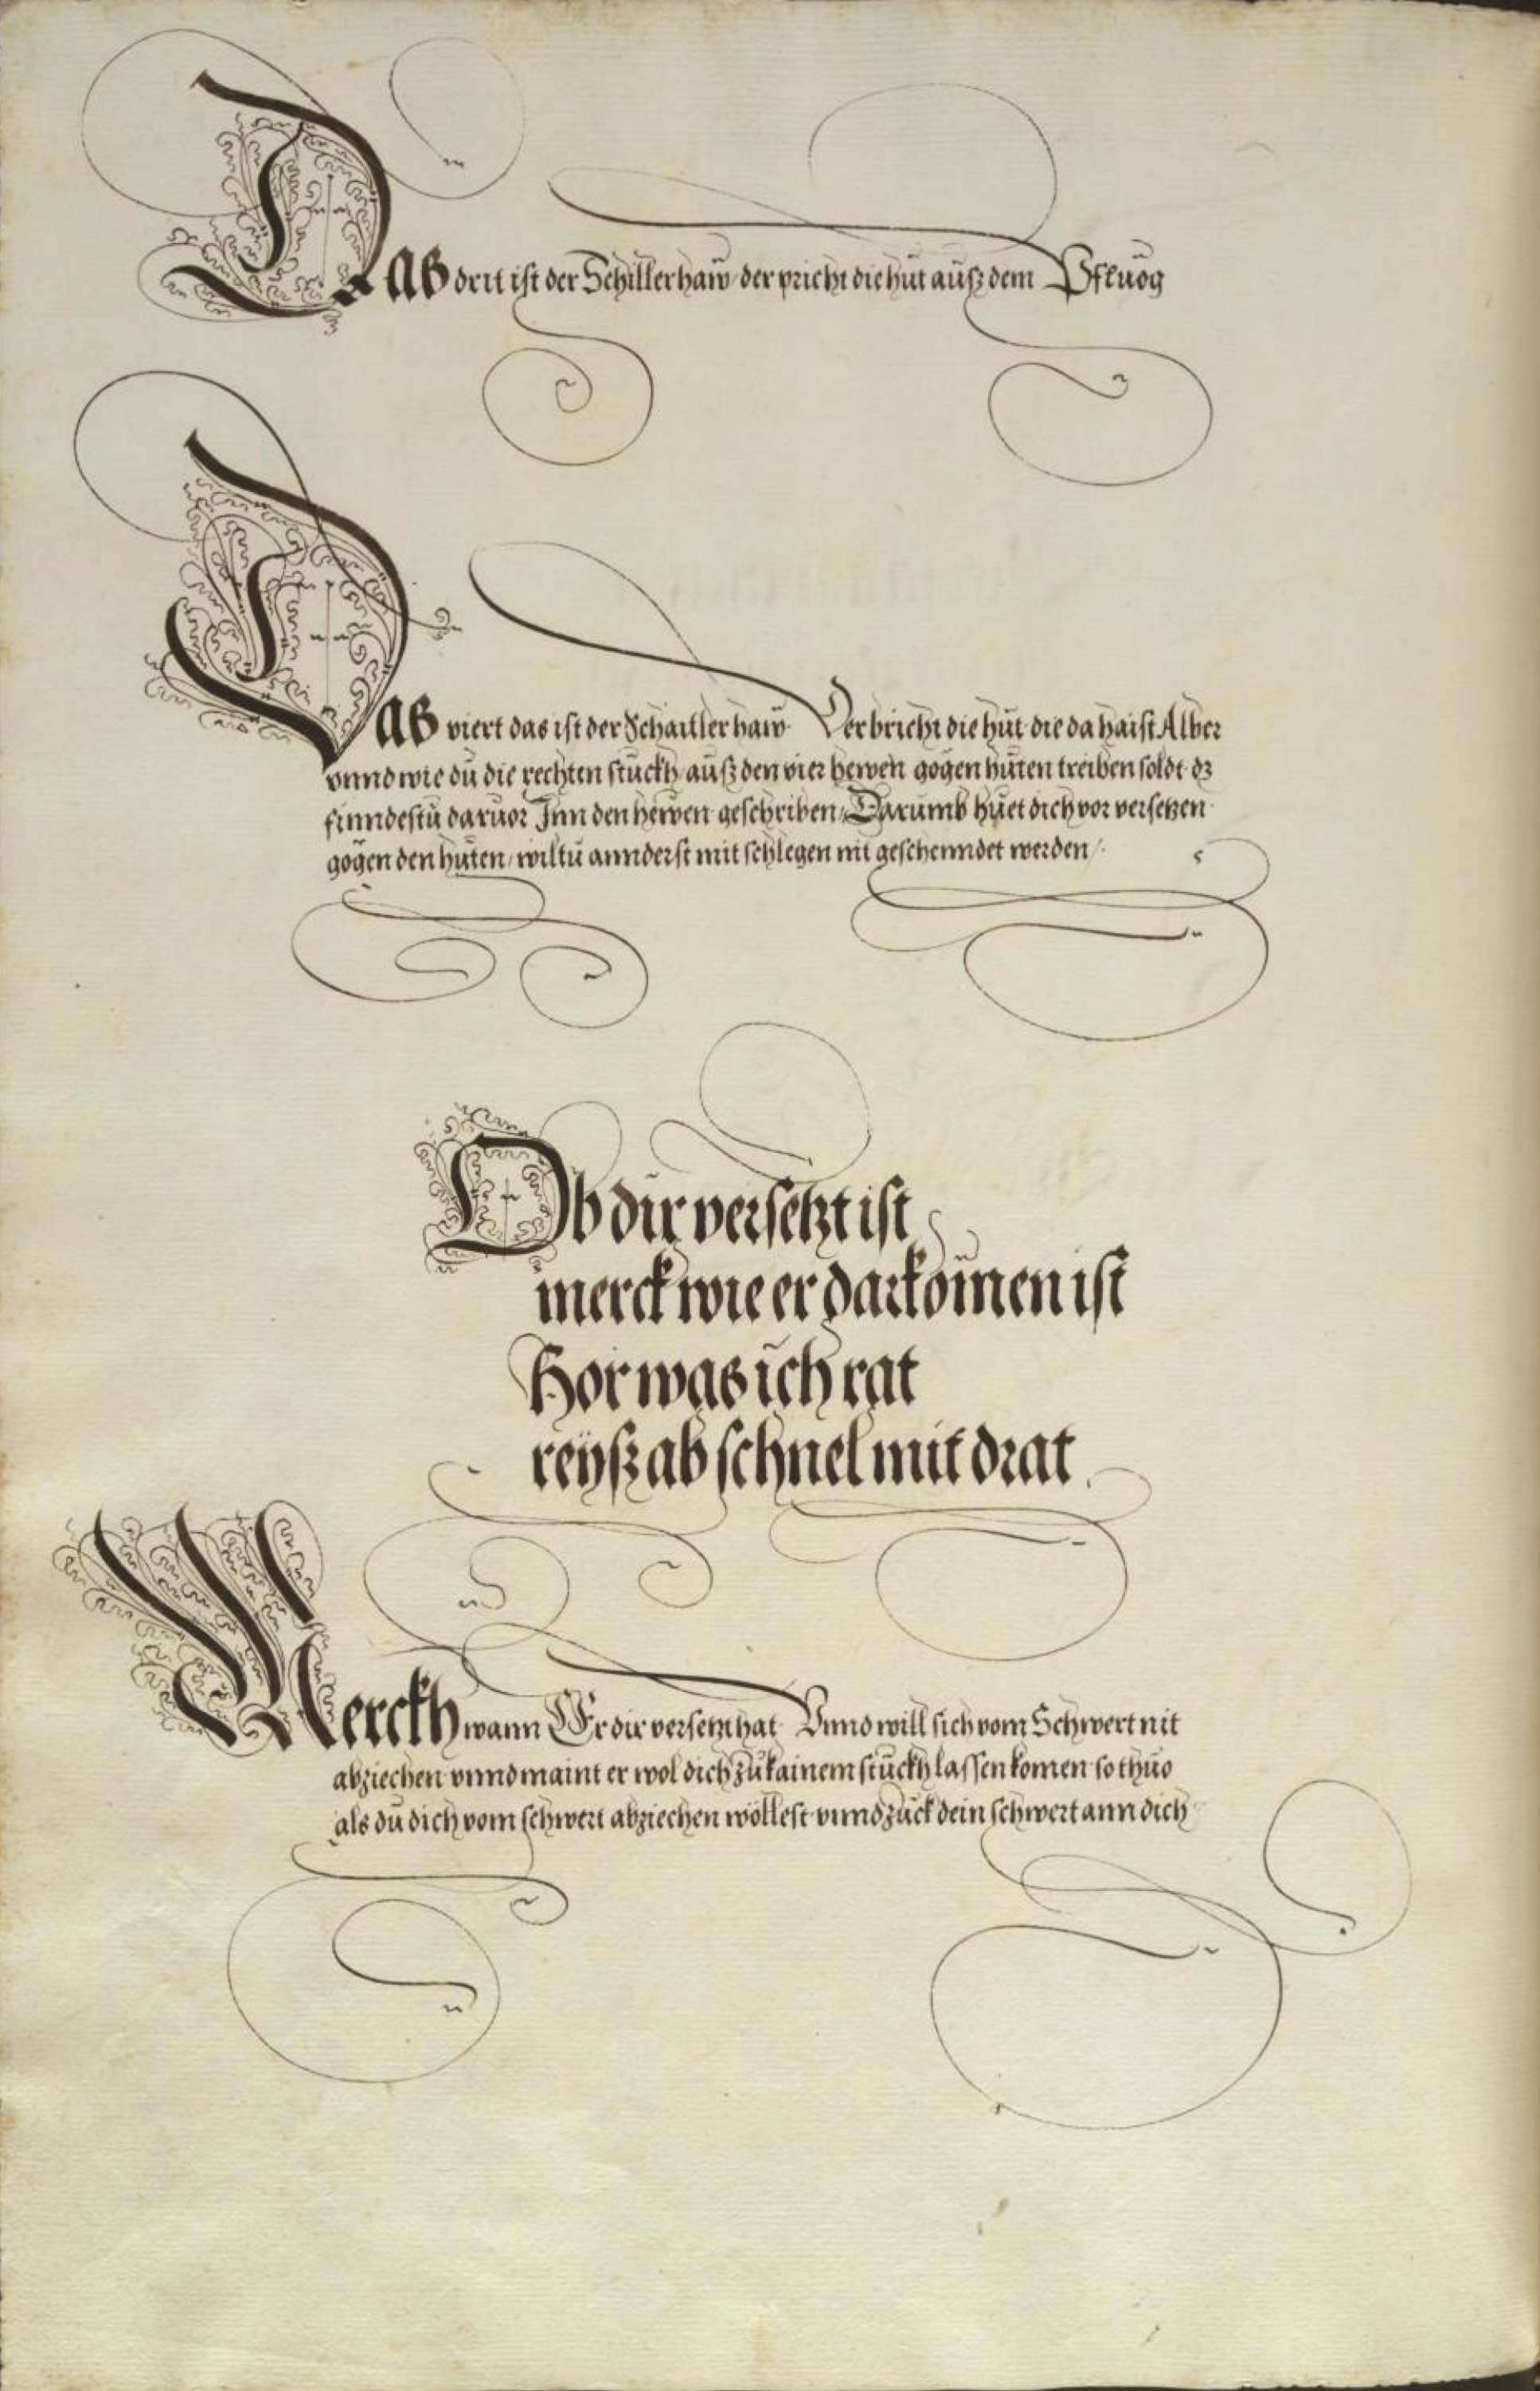 DAS drit ist der Schillerhaw der pricht die hüt auß dem Pfluog
DAS viert das ist der Schaitlerhaw Der bricht die hüt die da haist Alber
vnnd wie dü die rechten stuckh auß den vier hewen gögen hüten treiben soldt dz
finndestü daruor Jnn den hewen geschriben, Darumb hüet dich vor versetzen
gögen den hüten, wiltü annderst mit schlegen nit geschenndet werden /.
Ob dir versetzt ist
merck wie er dar komen ist
Hor was ich rat
reyß ab schnel mit drat
Merckh wann Er dir versetzt hat Vnnd will sich vom Schwert nit
abziechen vnnd maint er wol dich zü kainem stückh lassen komen so thuo
als dü dich vom schwert abziechen wöllest vnnd zück dein schwert ann dich